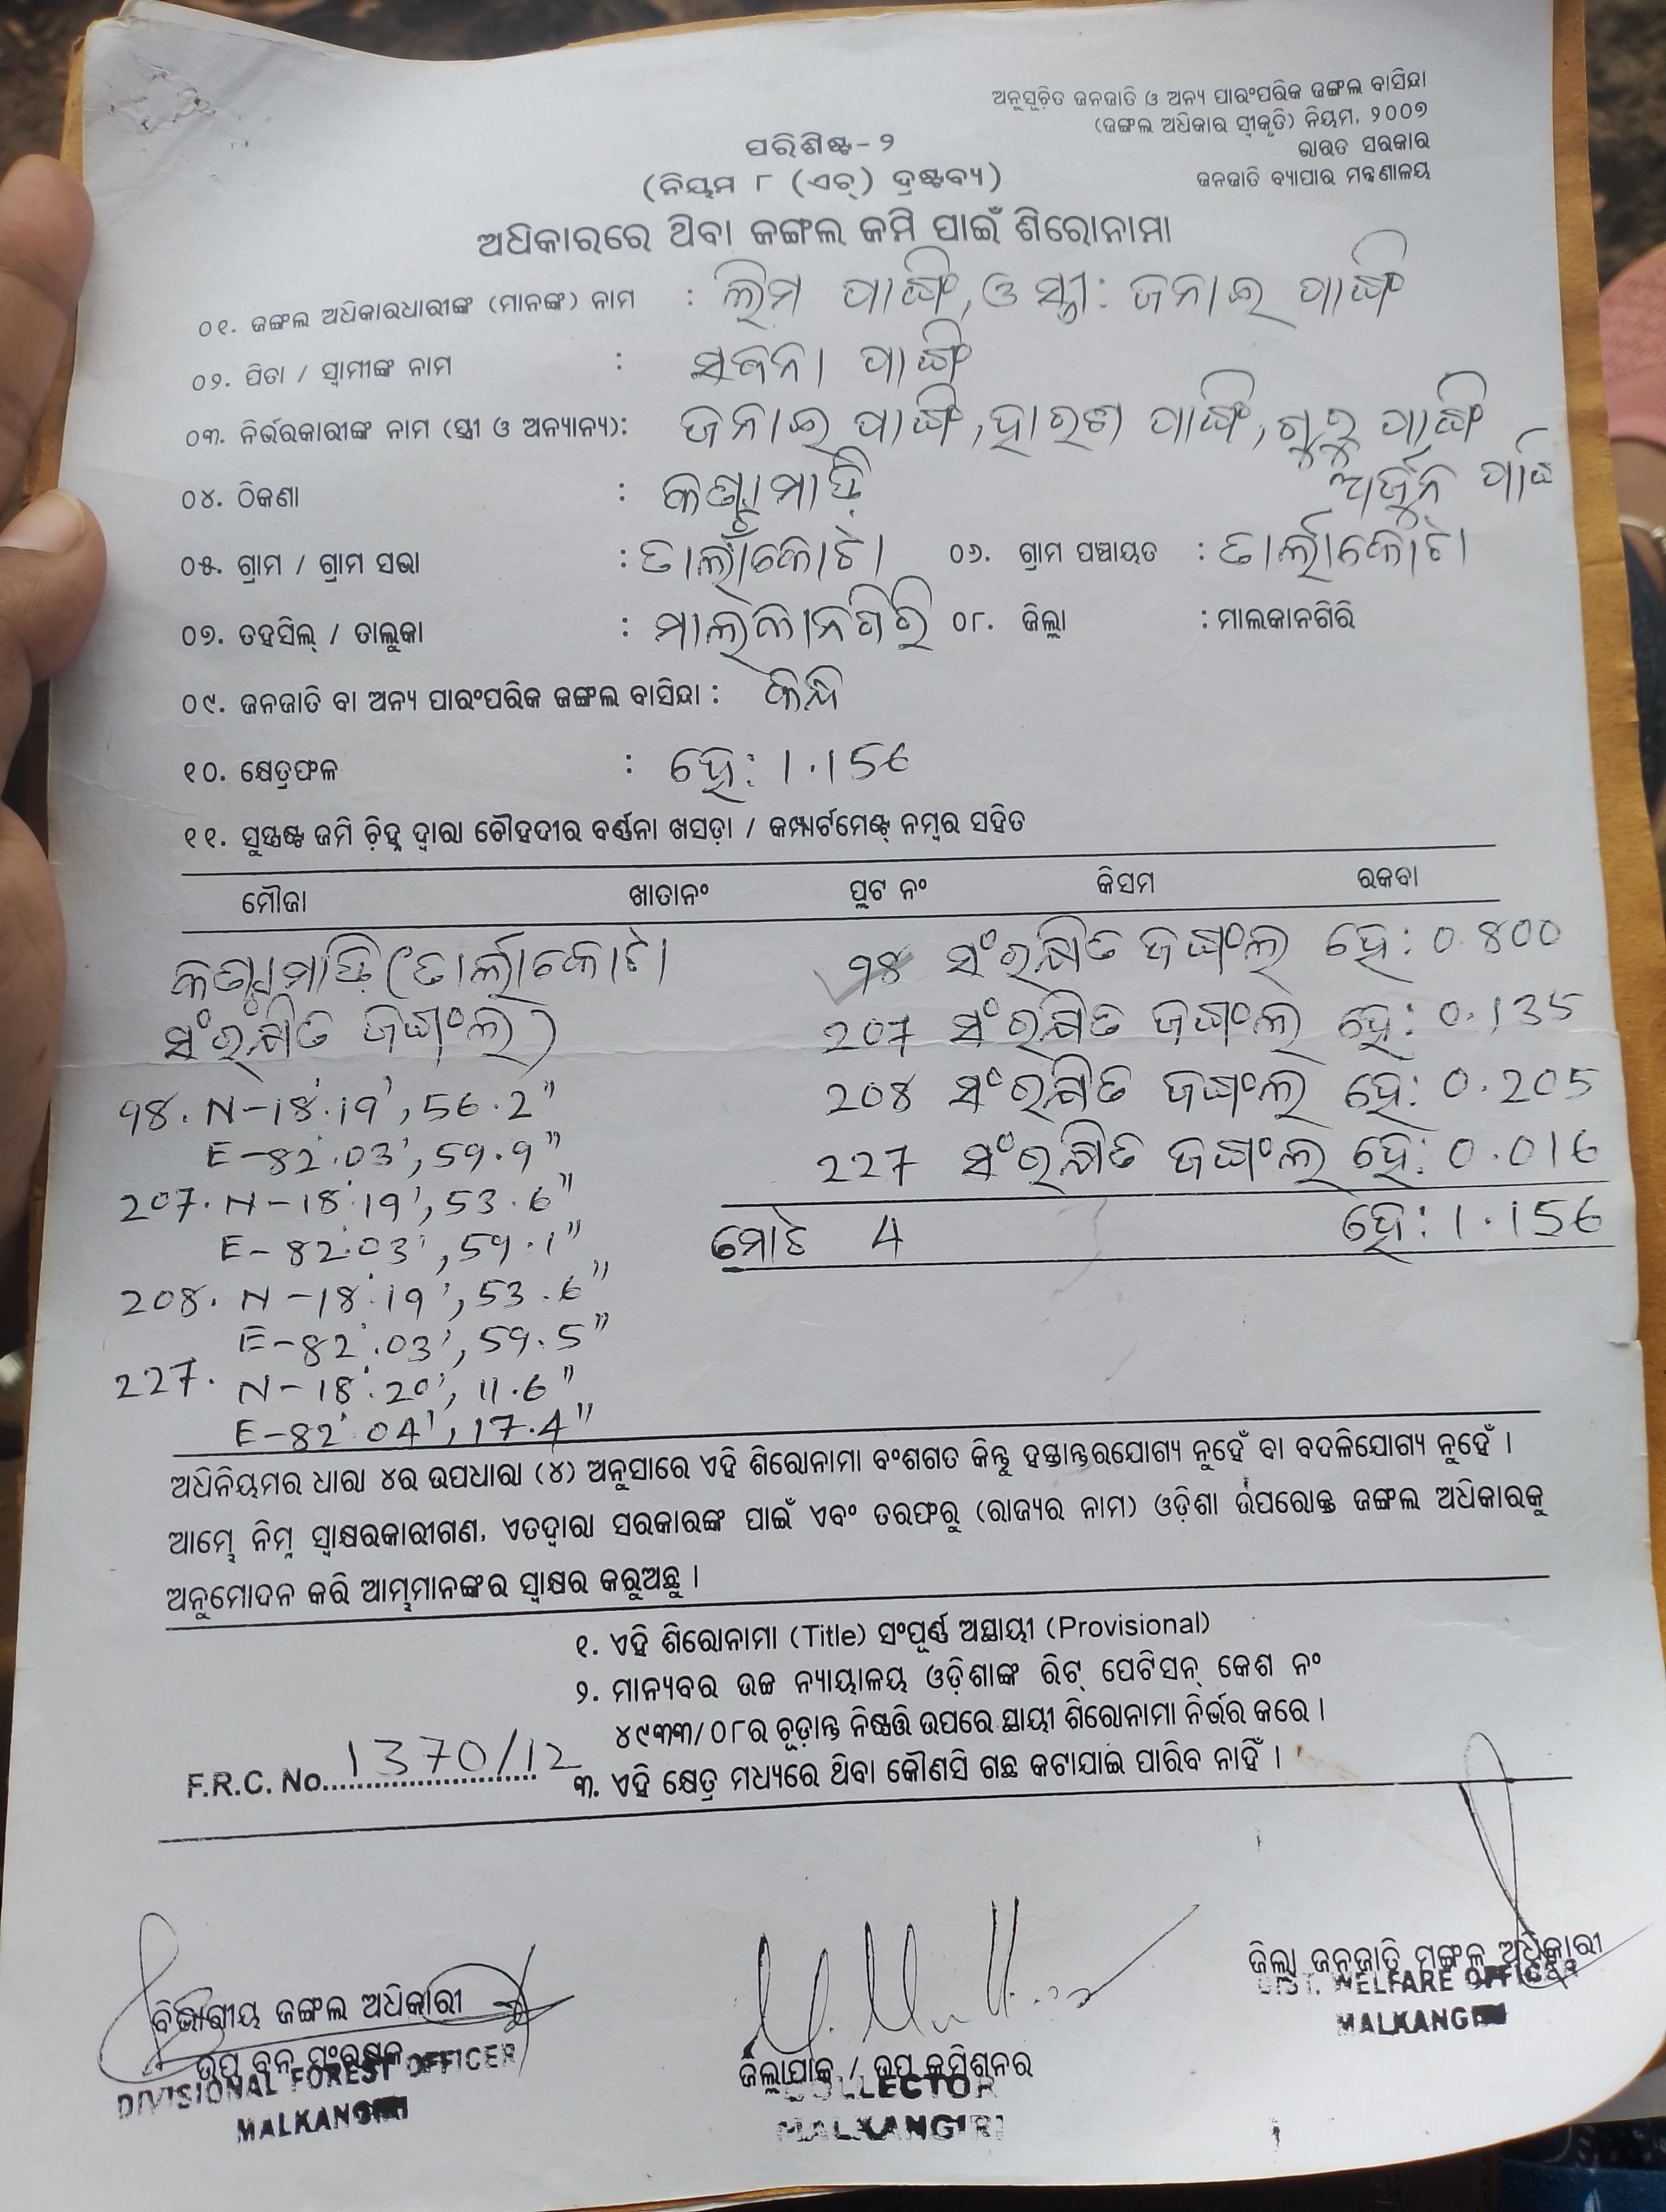 ଅନୁସୂଚିତ ଜନଜାତି ଓ ଅନ୍ୟ ପାରଂପରିକ ଜଙ୍ଗଲ ବାସିନ୍ଦା
(ଜଙ୍ଗଲ ଅଧିକାର ସ୍ୱୀକୃତି) ନିୟମ, ୨୦୦୭
ଭାରତ ସରକାର
ଜନଜାତି ବ୍ୟାପାର ମନ୍ତ୍ରଣାଳୟ
ପରିଶିଷ୍ଟ-୨
(ନିୟମ ୮ (ଏଚ୍) ଦ୍ରଷ୍ଟବ୍ୟ)
ଅଧିକାରରେ ଥିବା ଜଙ୍ଗଲ ଜମି ପାଇଁ ଶିରୋନାମା
୦୧. ଜଙ୍ଗଲ ଅଧିକାରଧାରୀଙ୍କ (ମାନଙ୍କ) ନାମ : ଲିମ ପାଙ୍ଗି, ଓ ସ୍ତ୍ରୀ: ଜନାଇ ପାଙ୍ଗି
୦୨. ପିତା / ସ୍ୱାମୀଙ୍କ ନାମ : ସବନା ପାଙ୍ଗି
୦୩. ନିର୍ଭରକାରୀଙ୍କ ନାମ (ସ୍ତ୍ରୀ ଓ ଅନ୍ୟାନ୍ୟ): ଜନାଇ ପାଙ୍ଗି, ପାଙ୍ଗି, ଗୁରୁ ପାଙ୍ଗି
ଅର୍ଜୁନ ପାଙ୍ଗି
୦୪. ଠିକଣା :
୦୫. ଗ୍ରାମ / ଗ୍ରାମ ସଭା : ତାର୍ଲାକୋଟା ୦୬. ଗ୍ରାମ ପଞ୍ଚାୟତ : ତାର୍ଲାକୋଟା
୦୭. ତହସିଲ୍ / ତାଲୁକା : ମାଲକାନଗିରି ୦୮. ଜିଲ୍ଲା : ମାଲକାନଗିରି
୦୯. ଜନଜାତି ବା ଅନ୍ୟ ପାରଂପରିକ ଜଙ୍ଗଲ ବାସିନ୍ଦା :
୧୦. କ୍ଷେତ୍ରଫଳ : ହେ: 1.156
୧୧. ସୁସ୍ପଷ୍ଟ ଜମି ଚିହ୍ନ ଦ୍ୱାରା ଚୌହଦୀର ବର୍ଣ୍ଣନା ଖସଡ଼ା / କମ୍ପାର୍ଟମେଣ୍ଟ୍ ନମ୍ବର ସହିତ
ମୌଜା ଖାତାନଂ ପ୍ଲଟ ନଂ କିସମ ରକବା
(ତାର୍ଲାକୋଟା 98 ସଂରକ୍ଷିତ ଜଙ୍ଗଲ ହେ: 0.800
ସଂରକ୍ଷିତ ଜଙ୍ଗଲ) 207 ସଂରକ୍ଷିତ ଜଙ୍ଗଲ ହେ: 0.135
98. N-18°.19', 56.2" 208 ସଂରକ୍ଷିତ ଜଙ୍ଗଲ ହେ: 0.205
E-82°.03', 59.9" 227 ସଂରକ୍ଷିତ ଜଙ୍ଗଲ ହେ: 0.016
207. N-18°.19', 53.6" ମୋଟ 4 ହେ: 1.156
E-82°.03', 59.1"
208. N-18°.19', 53.6"
E-82°.03', 59.5"
227. N-18°.20', 11.6"
E-82°.04', 17.4"
ଅଧିନିୟମର ଧାରା ୪ର ଉପଧାରା (୪) ଅନୁସାରେ ଏହି ଶିରୋନାମା ବଂଶଗତ କିନ୍ତୁ ହସ୍ତାନ୍ତରଯୋଗ୍ୟ ନୁହେଁ ବା ବଦଳିଯୋଗ୍ୟ ନୁହେଁ ।
ଆମ୍ଭେ ନିମ୍ନ ସ୍ୱାକ୍ଷରକାରୀଗଣ, ଏତଦ୍ୱାରା ସରକାରଙ୍କ ପାଇଁ ଏବଂ ତରଫରୁ (ରାଜ୍ୟର ନାମ) ଓଡ଼ିଶା ଉପରୋକ୍ତ ଜଙ୍ଗଲ ଅଧିକାରକୁ
ଅନୁମୋଦନ କରି ଆମ୍ଭମାନଙ୍କର ସ୍ୱାକ୍ଷର କରୁଅଛୁ ।
୧. ଏହି ଶିରୋନାମା (Title) ସଂପୂର୍ଣ୍ଣ ଅସ୍ଥାୟୀ (Provisional)
୨. ମାନ୍ୟବର ଉଚ୍ଚ ନ୍ୟାୟାଳୟ ଓଡ଼ିଶାଙ୍କ ରିଟ୍ ପେଟିସନ୍ କେଶ ନଂ
୪୯୩୩/୦୮ର ଚୂଡ଼ାନ୍ତ ନିଷ୍ପତ୍ତି ଉପରେ ସ୍ଥାୟୀ ଶିରୋନାମା ନିର୍ଭର କରେ ।
୩. ଏହି କ୍ଷେତ୍ର ମଧ୍ୟରେ ଥିବା କୌଣସି ଗଛ କଟାଯାଇ ପାରିବ ନାହିଁ ।
F.R.C. No. 1370/12
ବିଭାଗୀୟ ଜଙ୍ଗଲ ଅଧିକାରୀ
ଉପ ବନ ସଂରକ୍ଷକ
DIVISIONAL FOREST OFFICER
MALKANGIRI
ଜିଲ୍ଲାପାଳ / ଉପ କମିଶନର
COLLECTOR
MALKANGIRI
ଜିଲ୍ଲା ଜନଜାତି ମଙ୍ଗଳ ଅଧିକାରୀ
DIST. WELFARE OFFICER
MALKANGIRI